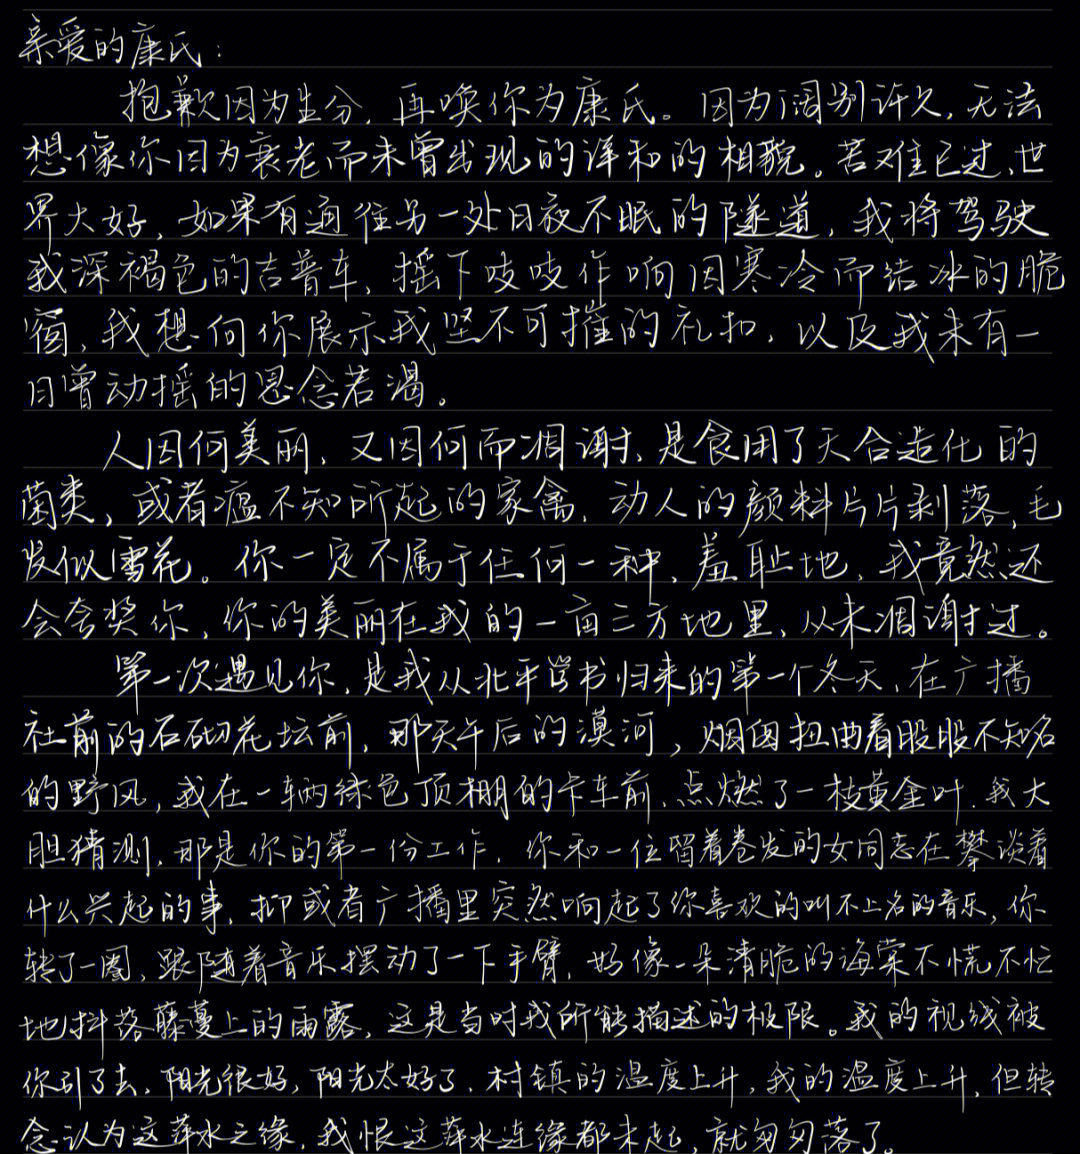 亲爱的康氏：
抱歉因为生分，再唤你为康氏。因为阔别许久，无法
想像你因为衰老而未曾出现的详和的相貌。苦难已过，世
界大好，如果有通往另一处日夜不眠的隧道，我将驾驶
我深褐色的吉普车，摇下吱吱作响因寒冷而结冰的脆
窗，我想向你展示我坚不可摧的礼扣，以及我未有一
日曾动摇的思念若渴。
人因何美丽，又因何而凋谢，是食用了天合造化的
菌类，或者瘟不知所起的家禽，动人的颜料片片剥落，毛
发似雪花。你一定不属于任何一种，羞耻地，我竟然还
会夸奖你，你的美丽在我的一亩三方地里，从未凋谢过。
第一次遇见你，是我从北平学书归来的第一个冬天，在广播
社前的石砌花坛前，那天午后的漠河，烟囱扭曲着股股不知名
的野风，我在一辆绿色顶棚的卡车前，点燃了一枝黄金叶，我大
胆猜测，那是你的第一份工作，你和一位留着卷发的女同志在攀谈着
什么兴起的事，抑或者广播里突然响起了你喜欢的叫不上名的音乐，你
转了一圈，跟随着音乐摆动了一下手臂，好像一朵清脆的海棠不慌不忙
地抖落藤蔓上的雨露，这是当时我所能描述的极限。我的视线被
你引了去，阳光很好，阳光太好了，村镇的温度上升，我的温度上升，但转
念认为这萍水之缘，我恨这萍水连缘都未起，就匆匆落了。